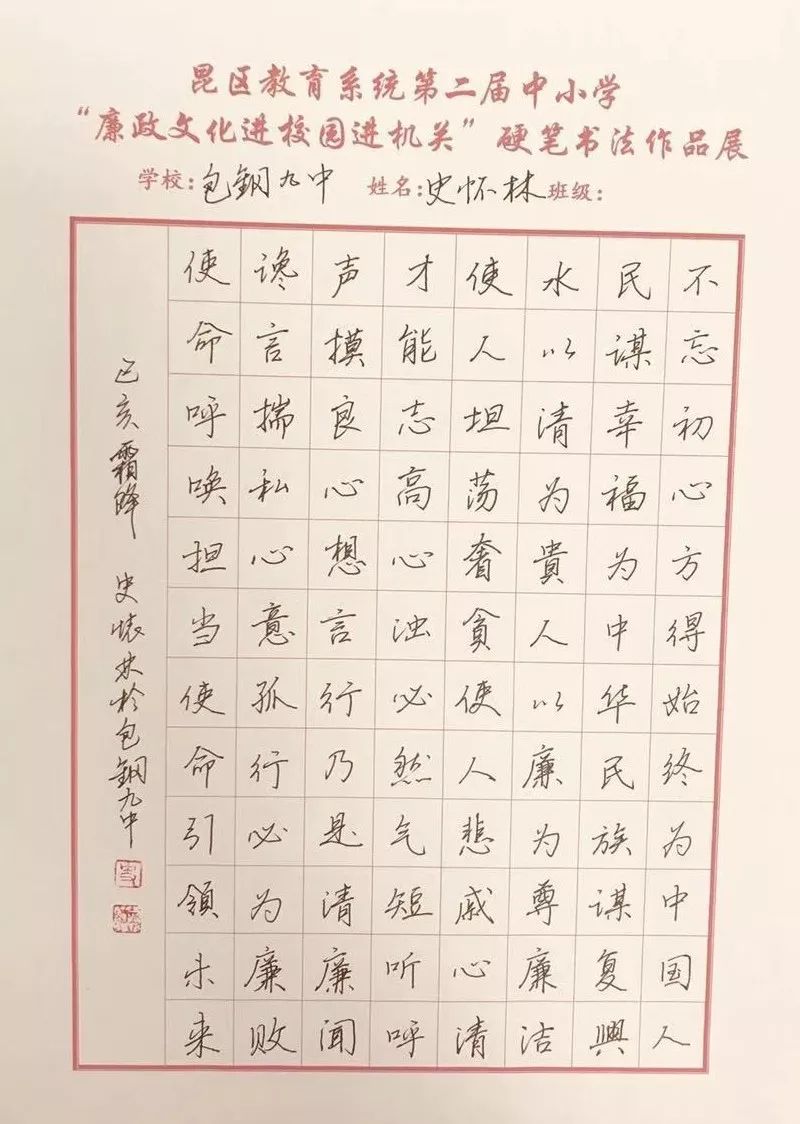 昆区教育系统第二届中小学
“廉政文化进校园进机关”硬笔书法作品展
学校：包钢九中 姓名：史怀林 班级：
不忘初心方得始终为中国人
民谋幸福为中华民族谋复興
水以清为貴人以廉为尊廉洁
使人坦荡奢貪使人悲戚心清
才能志高心浊必然气短听呼
声摸良心想言行乃是清廉闻
谗言揣私心意孤行必为廉败
使命呼唤担当使命引領未来
己亥霜降 史懐林於包鋼九中